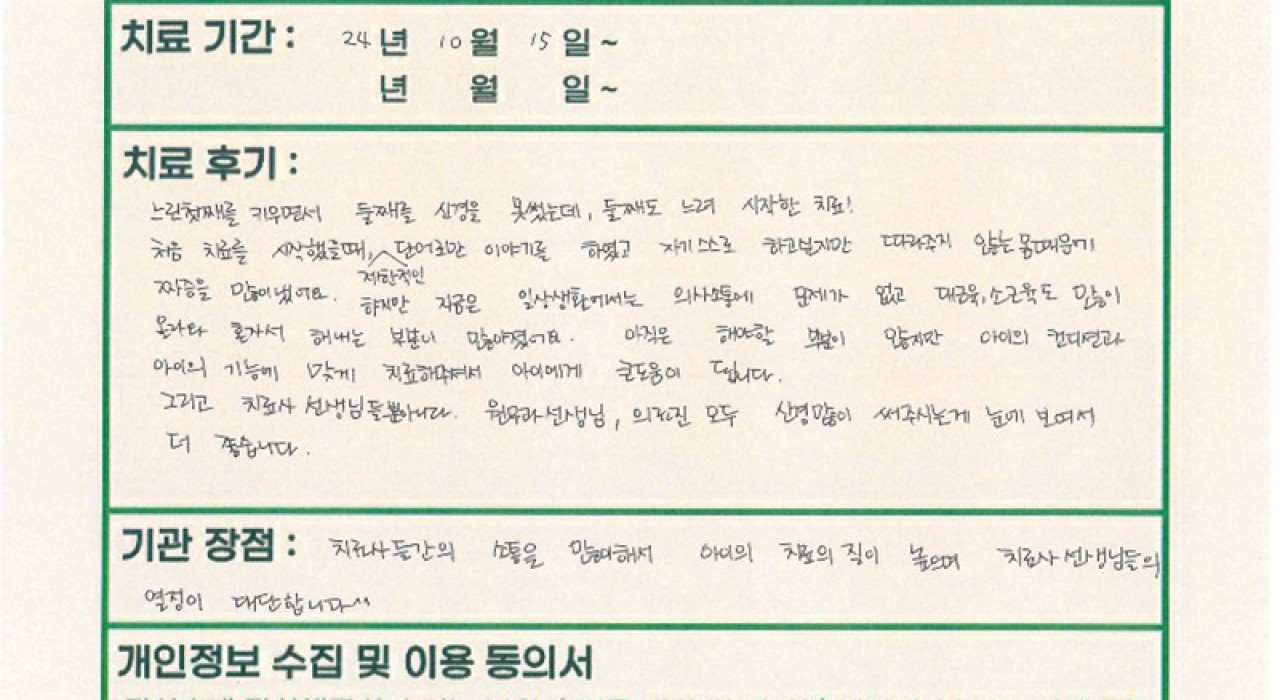 치료 기간 : 24 년 10 월 15 일 ~
년 월 일 ~
치료 후기 :
느린첫째를 키우면서 둘째를 신경을 못썼는데, 둘째도 느려 시작한 치료!
처음 치료를 시작했을때, 제한적인 단어로만 이야기를 하였고 자기 스스로 하고싶지만 따라주지 않는 몸때문에
짜증을 많이 냈어요. 하지만 지금은 일상생활에서는 의사소통에 문제가 없고 대근육, 소근육도 많이
올라와 혼자서 해내는 부분이 많아졌어요. 아직은 해야할 부분이 많지만 아이의 컨디션과
아이의 기능에 맞게 치료해주셔서 아이에게 큰도움이 됩니다.
그리고 치료사 선생님들뿐아니라. 원무과선생님, 의료진 모두 신경많이 써주시는게 눈에 보여서
더 좋습니다.
기관 장점 : 치료사들간의 소통을 많이해서 아이의 치료의 질이 높으며 치료사 선생님들의
열정이 대단합니다^^
개인정보 수집 및 이용 동의서